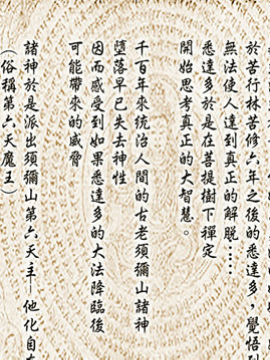 於苦行林苦修六年之後的悉達多，覺悟到
無法使人達到真正的解脫……
悉達多於是在菩提樹下禪定
開始思考真正的大智慧。
千百年來統治人間的古老須彌山諸神
墮落早已失去神性
因而感受到如果悉達多的大法降臨後
可能帶來的威脅
諸神於是派出須彌山第六天主─他化自在
（俗稱第六天魔王）